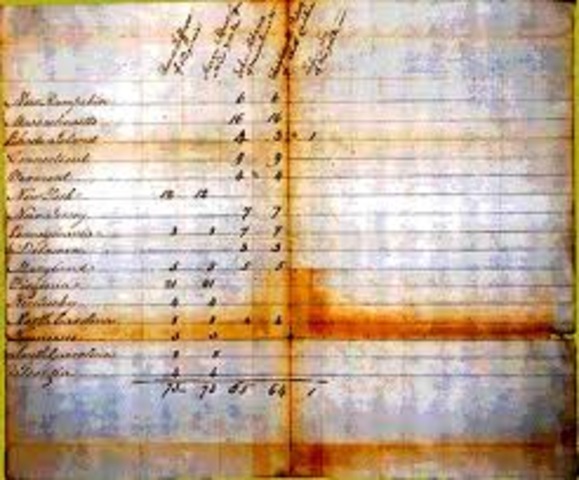 New Hampshire 6 6
Massachusetts 16 16
Rhode Island 4 3 1
Connecticut 9 9
Vermont 4 4
New York 12 12
New Jersey 7 7
Pennsylvania 8 8 7 7
Delaware 3 3
Maryland 5 5 5 5
Virginia 21 21
Kentucky 4 4
North Carolina 8 8 4 4
Tennessee 3 3
South Carolina 8 8
Georgia 4 4
73 73 65 64 1